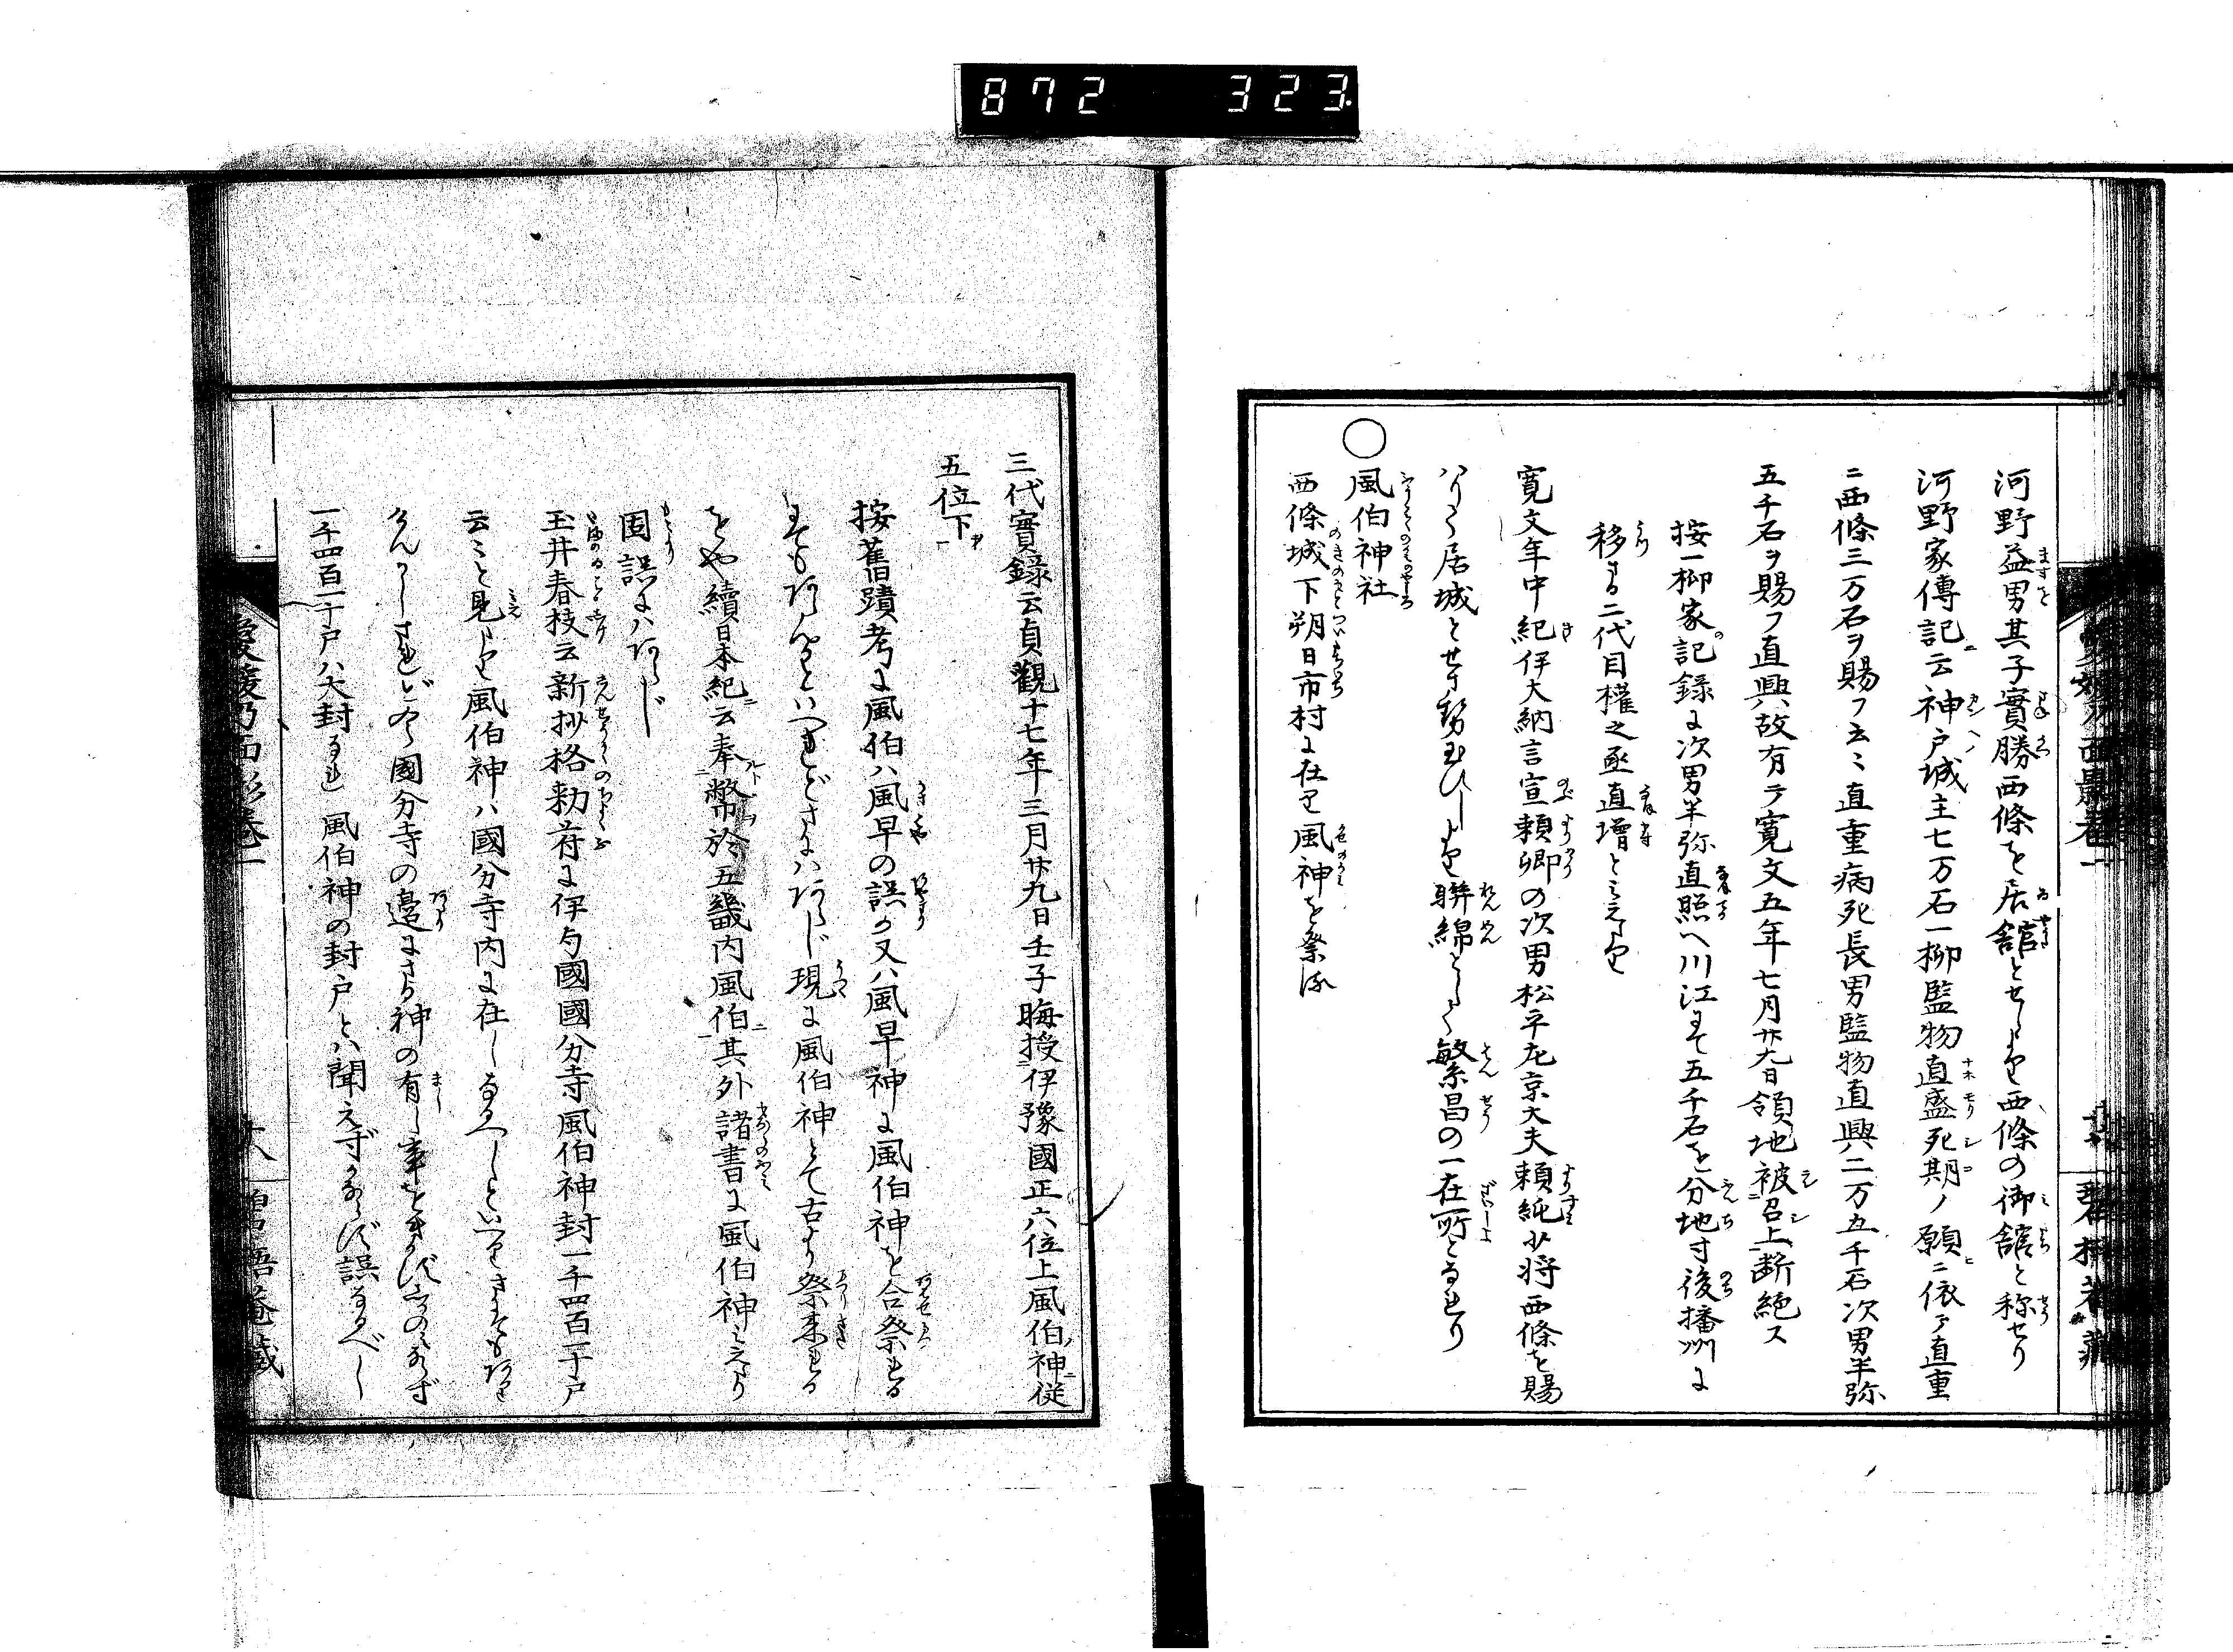 872 323
河野益男其子實勝西條を居舘とせしより西條の御舘と称せり
河野家傳記ニ云神戸城主七万石一柳監物直盛死期ノ願ニ依テ直重
ニ西條三万石ヲ賜フ云々直重病死長男監物直興二万五千石次男半弥
五千石ヲ賜フ直興故有テ寛文五年七月廿九日領地被召上断絶ス
按一柳家記録に次男半弥直照へ川江にて五千石を分地す後播州に
移る二代目權之丞直増とみえたり
寛文年中紀伊大納言宣頼卿の次男松平左京大夫頼純少将西條を賜
はりて居城とせさせ給ひしより聯綿として繁昌の一在所となれり
○風伯神社
西條城下朔日市村に在り風神を祭る
三代實録云貞觀十七年三月廿九日壬子晦授伊豫國正六位上風伯神従
五位下
按舊蹟考に風伯ハ風早の誤か又ハ風早神に風伯神を合祭れる
にてもあらんかといへれどさにハあらじ現に風伯神とて古より祭来れる
をや續日本紀ニ云奉幣於五畿内風伯其外諸書に風伯神みえたり
固誤にハあらじ
玉井春枝云新抄格勅符に伊与國國分寺風伯神封一千四百一十戸
云々と見えたり風伯神ハ國分寺内に在しなるべしといへりさてもあり
けんかしされど今國分寺の邊にさる神の有し事をきかず
一千四百一十戸ハ大封なれ 風伯神の封戸とハ聞えず 誤なるべし
愛媛乃面影巻一
十八